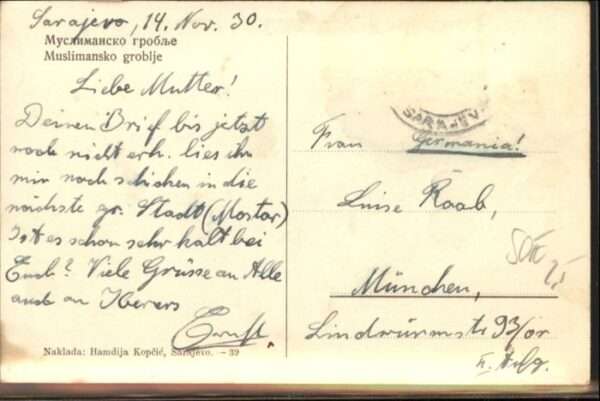 Sarajevo, 14. Nov. 30.
Муслиманско гробље
Muslimansko groblje
Liebe Mutter!
Deinen Brief bis jetzt
noch nicht erh. lies ihn
mir noch schicken in die
nächste gr. Stadt (Mostar)
Ist es schon sehr kalt bei
Euch? Viele Grüsse an Alle
auch an
Ernst.
Naklada: Hamdija Kopčić, Sarajevo. – 39
SARAJEV
Germania!
Frau
Luise Raab,
München,
Lindwurmstr 93/or